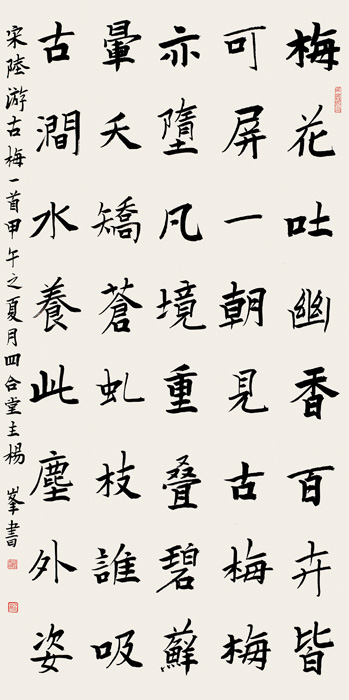 梅花吐幽香百卉皆
可屏一朝見古梅梅
亦墮凡境重叠碧蘚
暈夭矯蒼虬枝誰吸
古澗水養此塵外姿
宋陸游古梅一首甲午之夏月四合堂主楊峯書